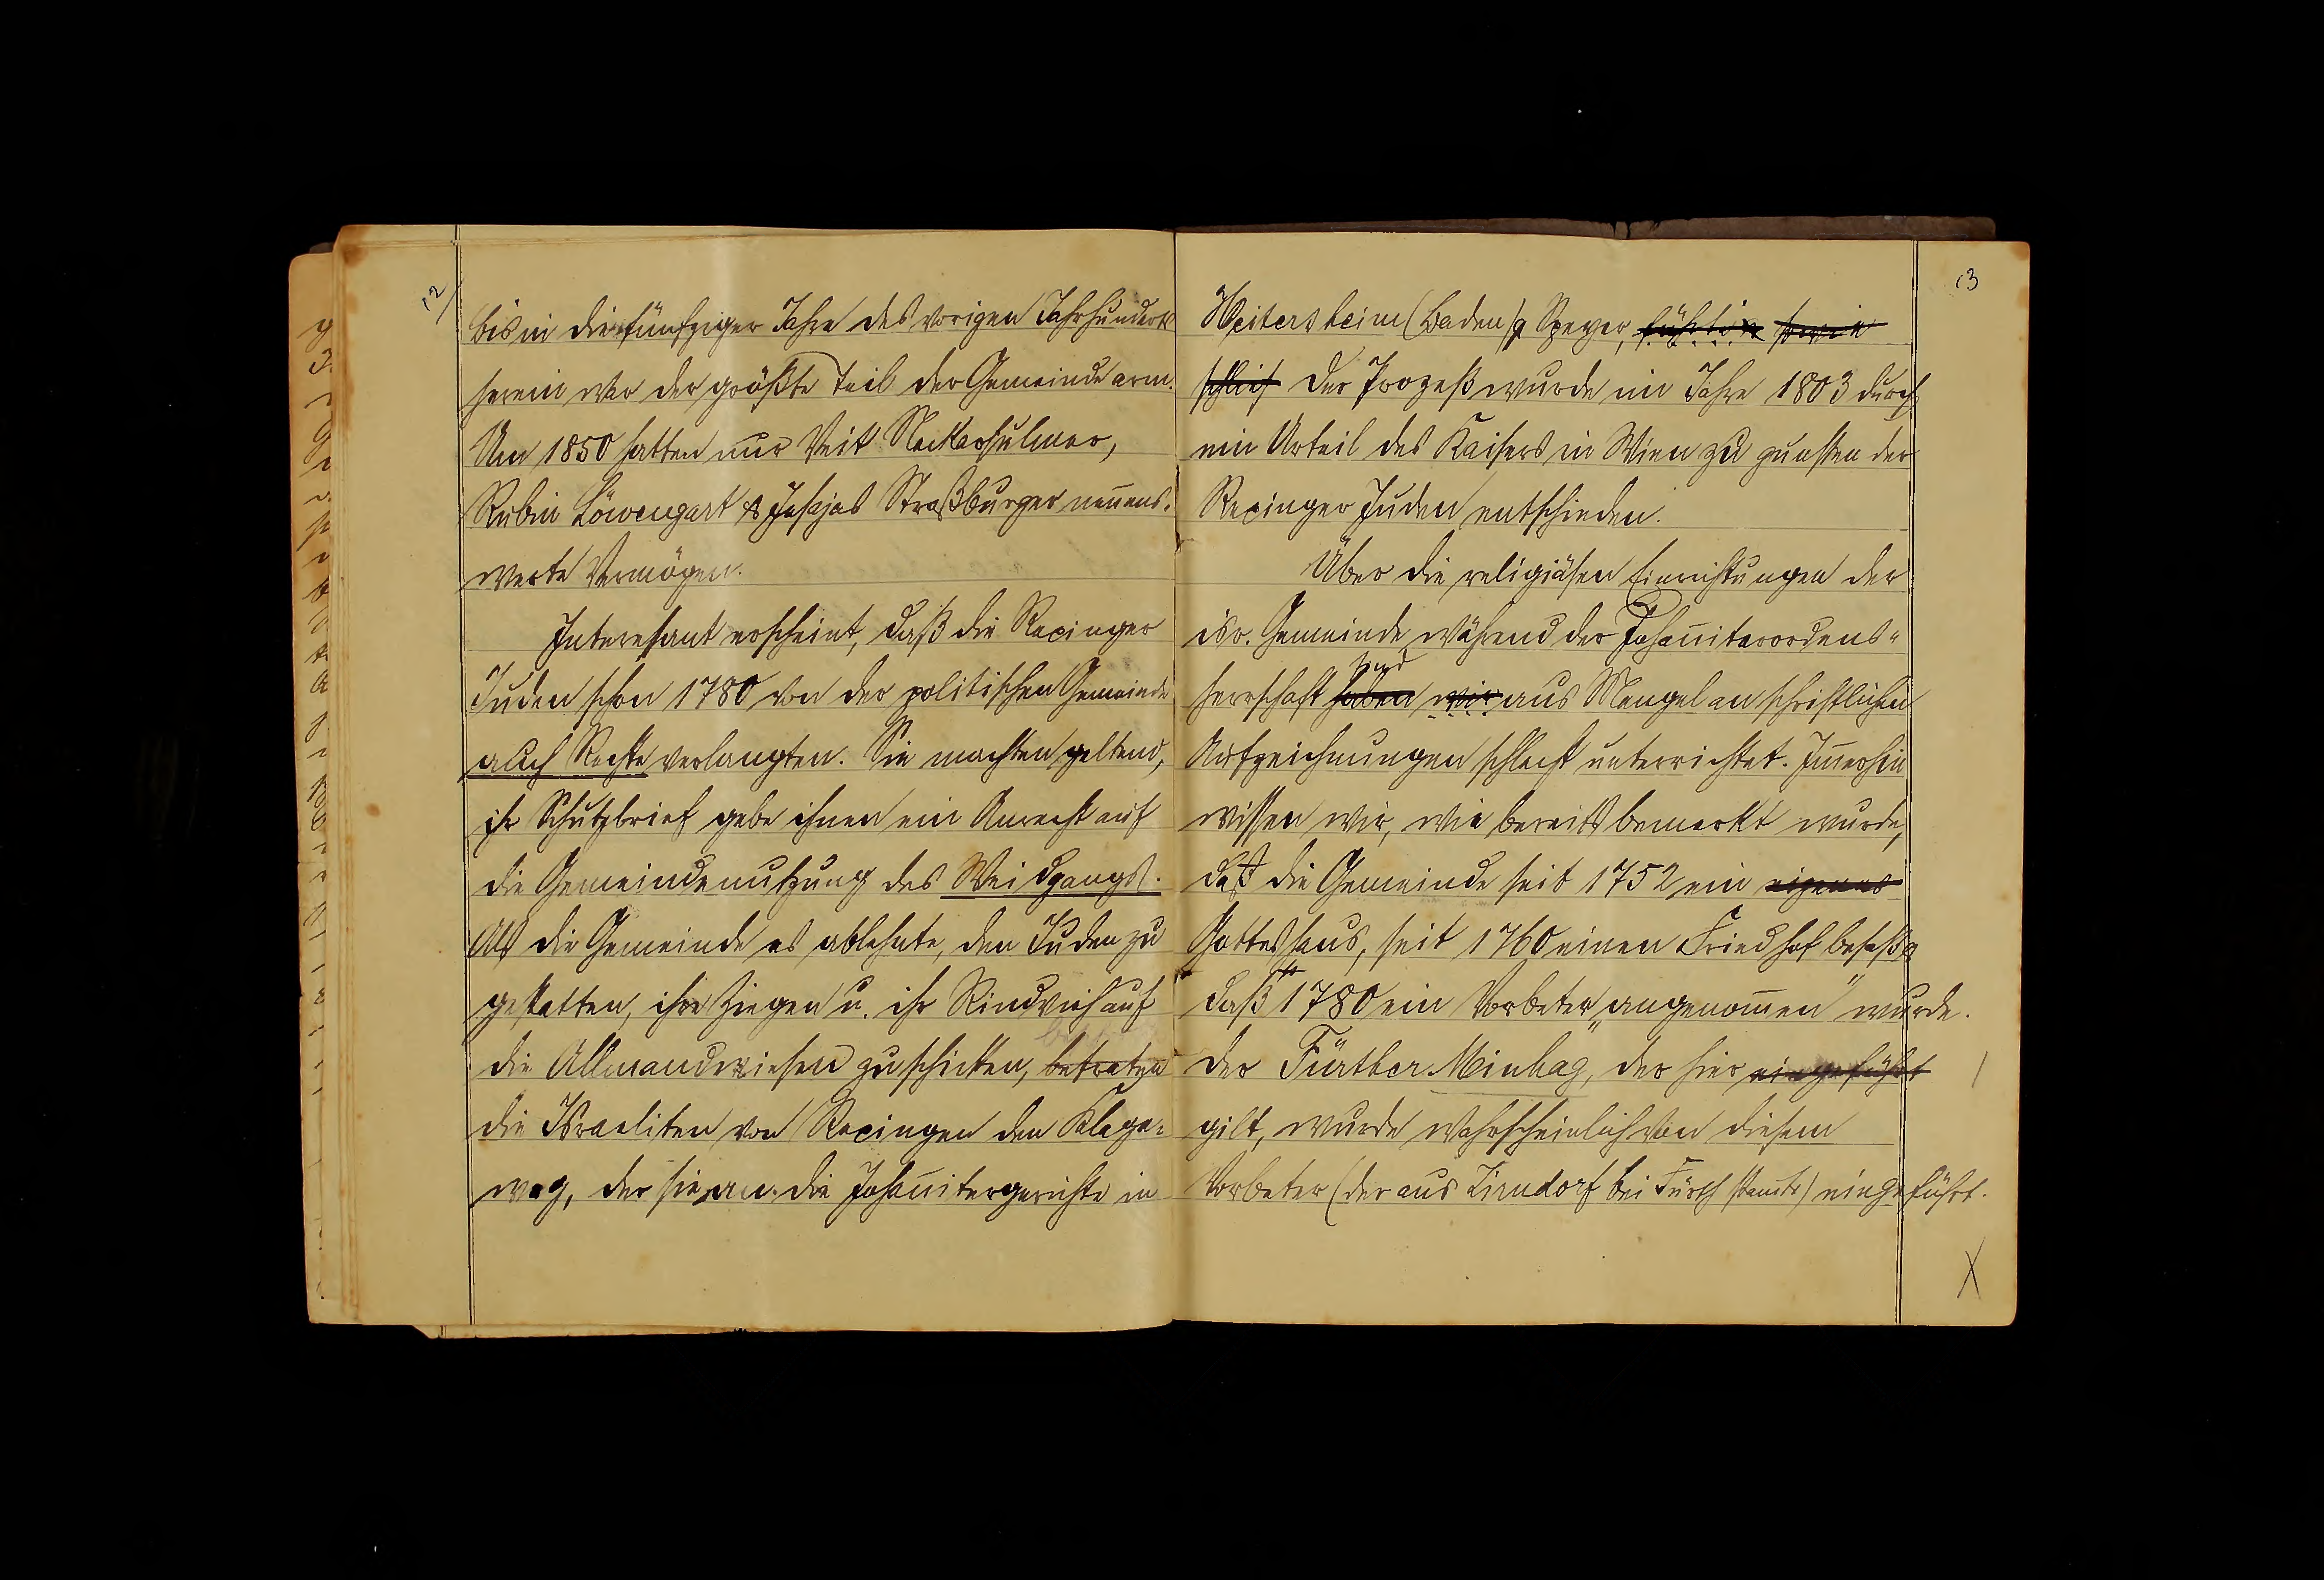 12/
bis in die fünfziger Jahre des vorigen Jahrhunderts
herein war der größte Teil der Gemeinde arm.
Um 1850 hatten nur Veit Neckarsulmer,
Rubin Löwengart & Jesajas Straßburger nennens-
werte Vermögen.
Interesant erscheint, daß die Rexinger
Juden schon 1780 von der politischen Gemeinde
auch Rechte verlangten. Sie machten geltend,
ihr Schutzbrief gebe ihnen ein Anrecht auf
die Gemeindenutzung des Weidgangs.
Als die Gemeinde es ablehnte, den Juden zu
gestatten, ihre Ziegen u. ihr Rindvieh auf
die Allmandwiesen zu schicken, betraten
die Israeliten von Rexingen den Klage-
weg, der sie an die Johannitergerichte in
13
Heitersheim (Baden) & Speyer, führte
Der Prozeß wurde im Jahre 1803 durch
ein Urteil des Kaisers in Wien zu gunsten der
Rexinger Juden entschieden.
Über die religiösen Einrichtungen der
isr. Gemeinde während der Johanniterordens-
sind
herrschaft haben wir aus Mangel an schriftlichen
Aufzeichnungen schlecht unterrichtet. Immerhin
wissen wir, wie bereits bemerkt wurde,
daß die Gemeinde seit 1752 ein eigenes
Gotteshaus, seit 1760 einen Friedhof besaß &
daß 1780 ein Vorbeter „angenommen" wurde.
Der Fürther Minhag, der hier eingeführt
gilt, wurde wahrscheinlich von diesem
Vorbeter (der aus Zirndorf bei Fürth stamte) eingeführt.
X